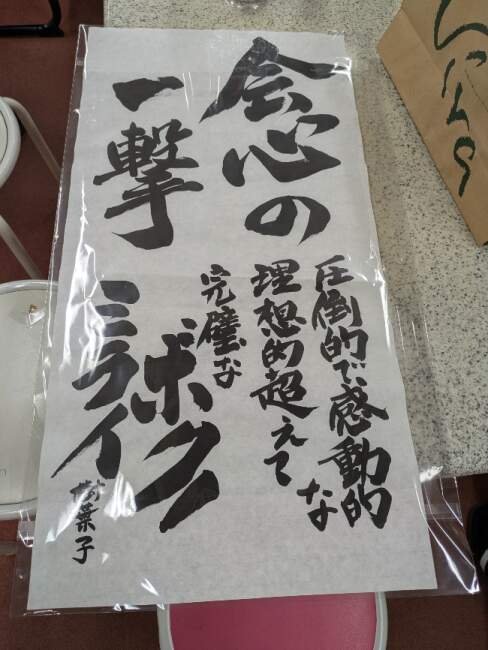 会心の
一撃
圧倒的で感動的な
理想的超えて
完璧な
ボクノ
ミライ
樹葉子
んにちの